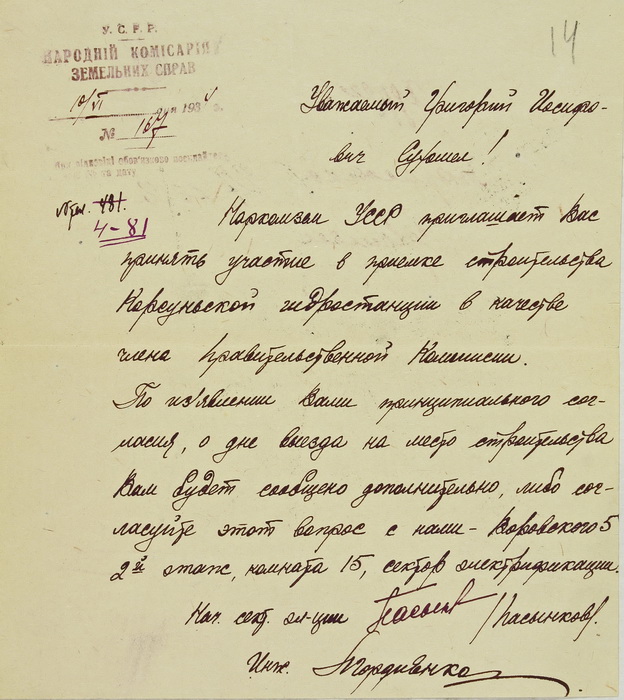 У. С. Р. Р.
НАРОДНІЙ КОМІСАРІЯТ
ЗЕМЕЛЬНИХ СПРАВ
10/VI 193
№
14
Уважаемый Григорий Иосифо-
вич Сухомел!
4-81
Наркомзем УССР приглашает Вас
принять участие в приемке строительства
Корсуньской гидростанции в качестве
члена правительственной Комиссии.
По из'явлении Вами принципиального сог-
ласия, о дне выезда на место строительства
Вам будет сообщено дополнительно, либо сог-
ласуйте этот вопрос с нами - Воровского 5
2й этаж, комната 15, сектор электрификации.
Нач. сект. эл-ции /Пасынков/.
Инж. Гордиенко